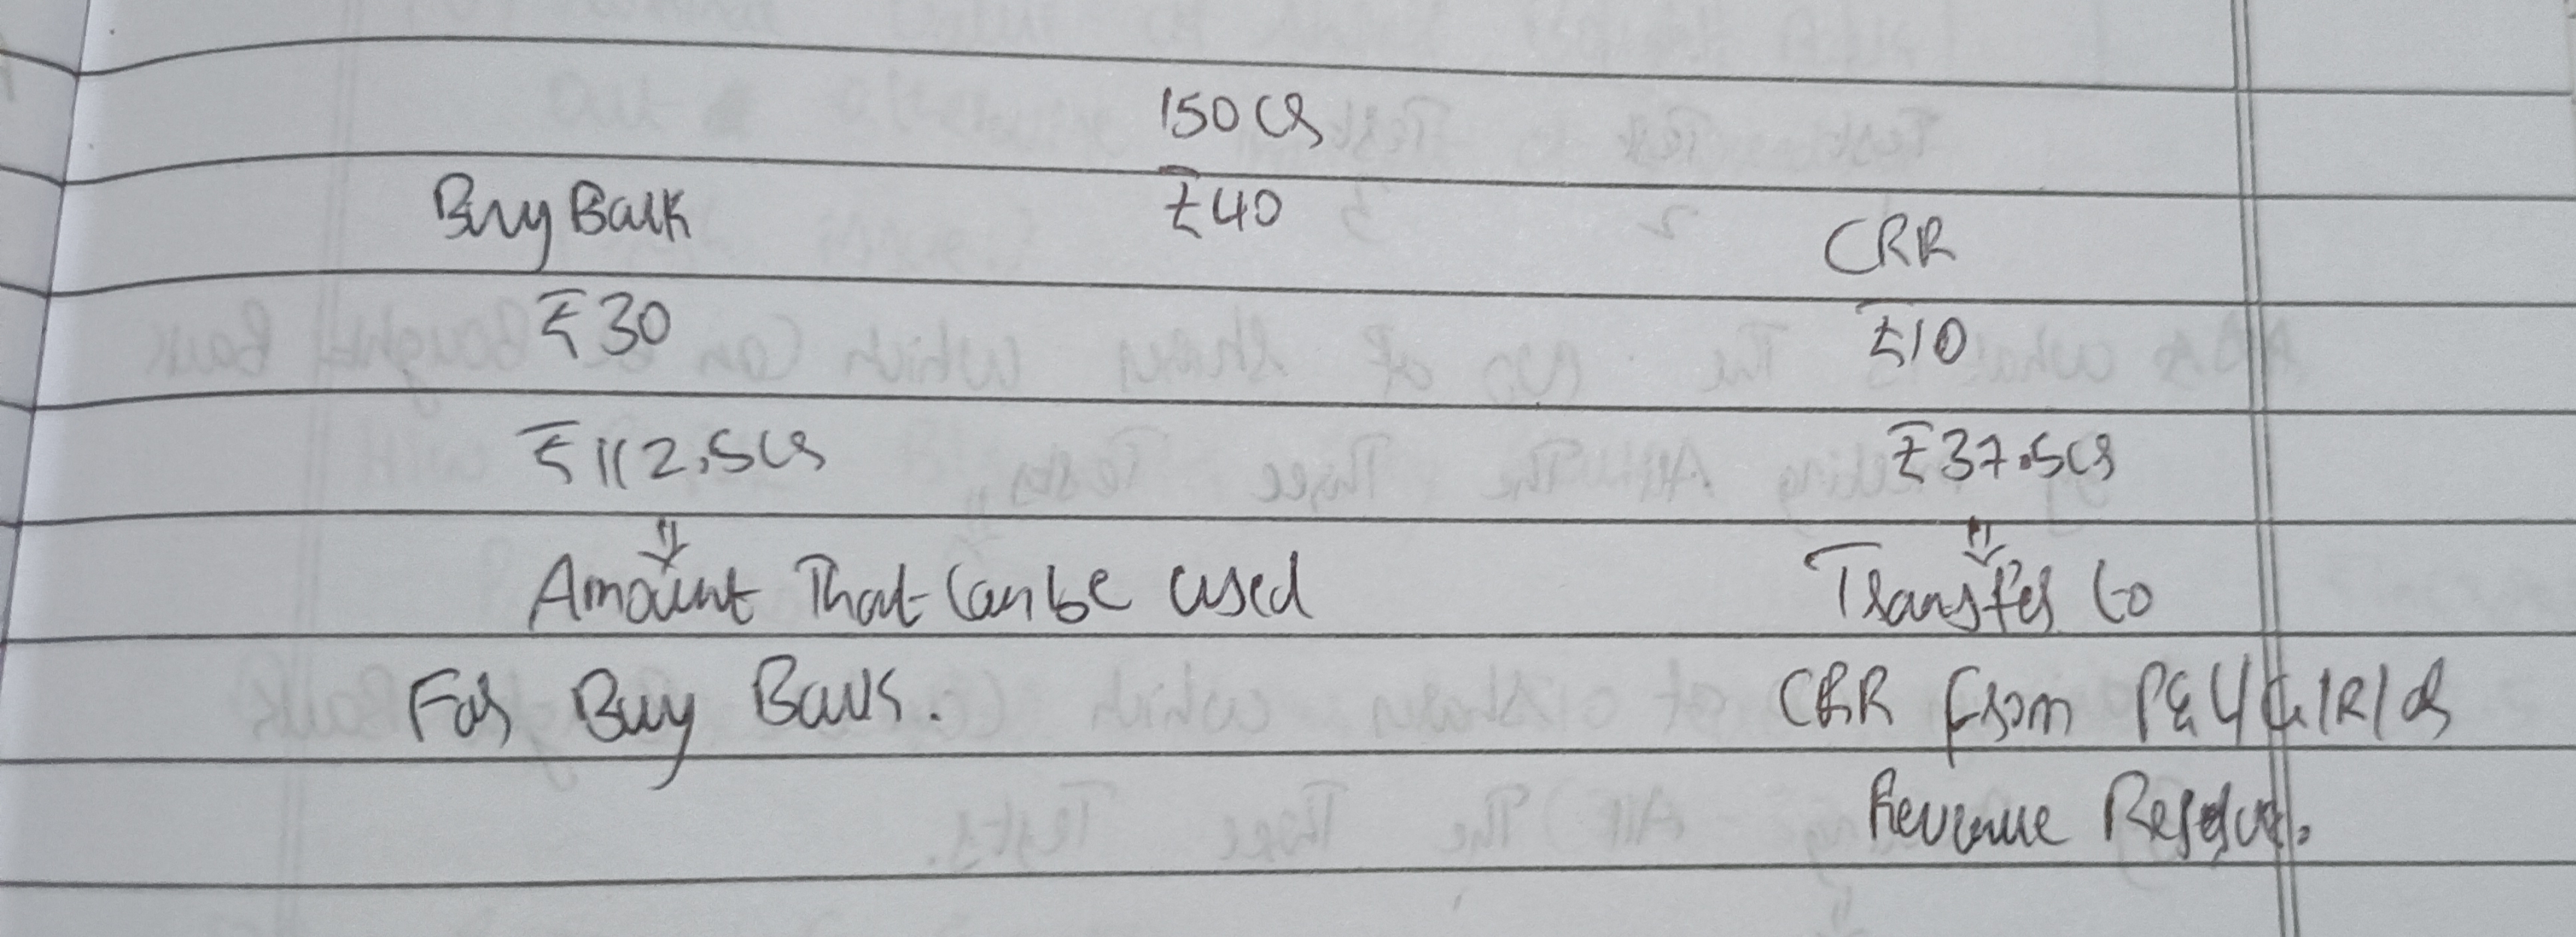 150 Cr
Buy Back ₹40 CRR
₹30 ₹10
₹112.5Cr ₹37.5Cr
Amount That Can be used Transfer to
For Buy Back. CRR from P&L/G/R/or
Revenue Reserve.